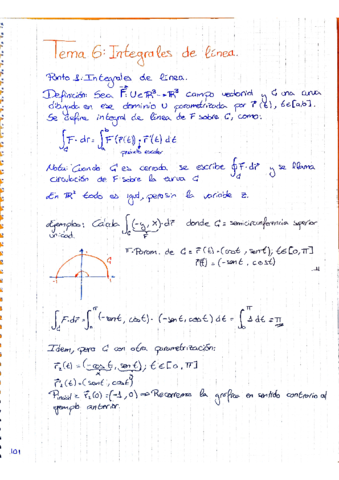 Tema 6: Integrales de línea.
Punto 1: Integrales de línea.
Definición: Sea F: U∈ℝ³→ℝ³ campo vectorial y C una curva
dibujada en ese dominio U parametrizada por r⃗(t), t∈[a,b].
Se define integral de línea de F sobre C, como:
∫_C F·dr = ∫_a^b F(r⃗(t))·r⃗'(t) dt
producto escalar
Nota: Cuando C es cerrada, se escribe ∮F·dr y se llama
circulación de F sobre la curva C
En ℝ² todo es igual, pero sin la variable z.
Ejemplos: Calcula ∫_C (-y, x)·dr donde C = semicircunferencia superior
F
unidad.
F·Param. de C = r⃗(t) = (cost, sent), t∈[0,π]
r⃗'(t) = (-sent, cost)
C
1
∫_C F·dr = ∫_0^π (-sent, cost)·(-sent, cost) dt = ∫_0^π 1 dt = π
Idem, pero C con otra parametrización:
r⃗₂(t) = (-cost, sent); t∈[0,π]
r⃗₂'(t) = (sent, cost)
P inicial = r⃗₂(0) = (-1, 0) ⇒ Recorremos la gráfica en sentido contrario al
ejemplo anterior.
101